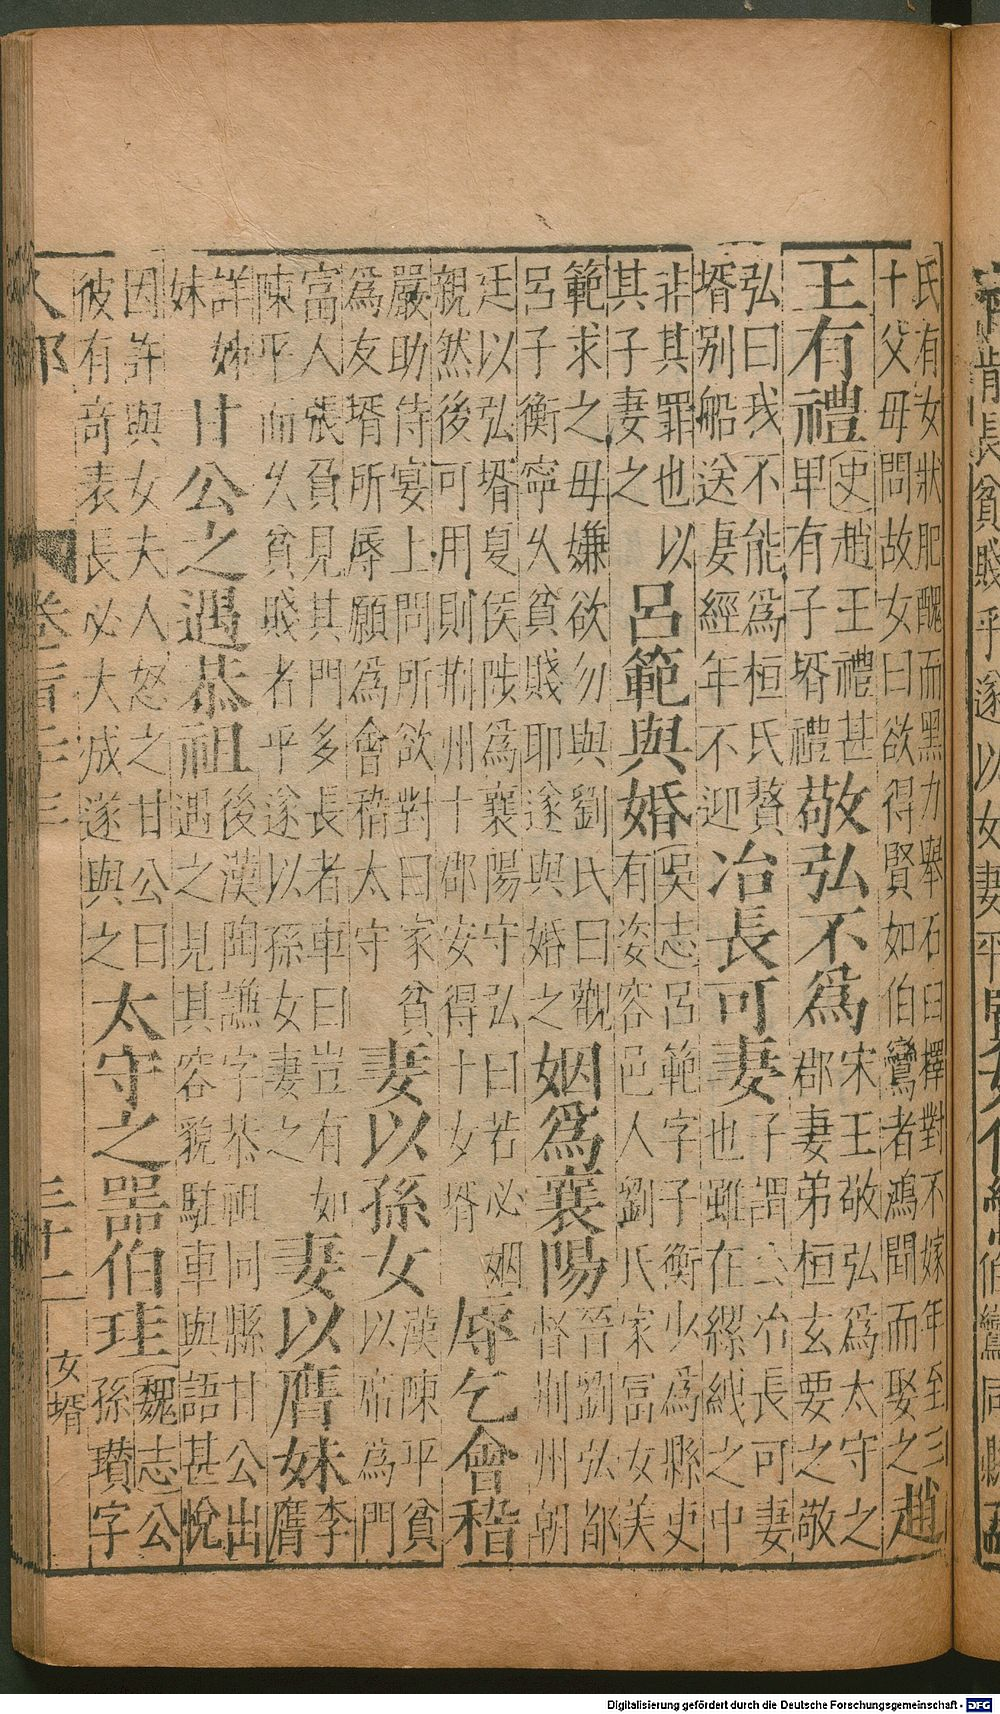 氏有女狀肥醜而黑力舉石臼擇對不嫁年到三
十父母問故女曰欲得賢如伯鸞者鴻聞而娶之
趙
王有禮
史趙王禮甚
卑有子壻禮
敬弘不爲
宋王敬弘爲太守之
郡妻弟桓玄要之敬
弘曰我不能爲桓氏贅
壻別船送妻經年不迎
冶長可妻
子謂公冶長可妻
也雖在縲絏之中
非其罪也以
其子妻之
呂範與婚
吳志呂範字子衡少爲縣吏
有姿容邑人劉氏家冨女美
範求之母嫌欲勿與劉氏曰觀
呂子衡寧久貧賤耶遂與婚之
姻爲襄陽
晉劉弘都
督荊州朝
廷以弘壻夏侯陟爲襄陽守弘曰若必姻
親然後可用則荊州十郡安得十女壻
辱乞會稽
嚴助侍宴上問所欲對曰家貧
爲友壻所辱願爲會稽太守
妻以孫女
漢陳平貧
以席爲門
富人張負見其門多長者車曰豈有如
陳平而久貧賤者平遂以孫女妻之
妻以膺妹
李
膺
詳姊
妹
甘公之遇恭祖
後漢陶謙字恭祖同縣甘公出
遇之見其容貌駐車與語甚悅
因許與女夫人怒之甘公曰
彼有奇表長必大成遂與之
太守之器伯珪
魏志公
孫瓚字
三十二
女壻
Digitalisierung gefördert durch die Deutsche Forschungsgemeinschaft - DFG